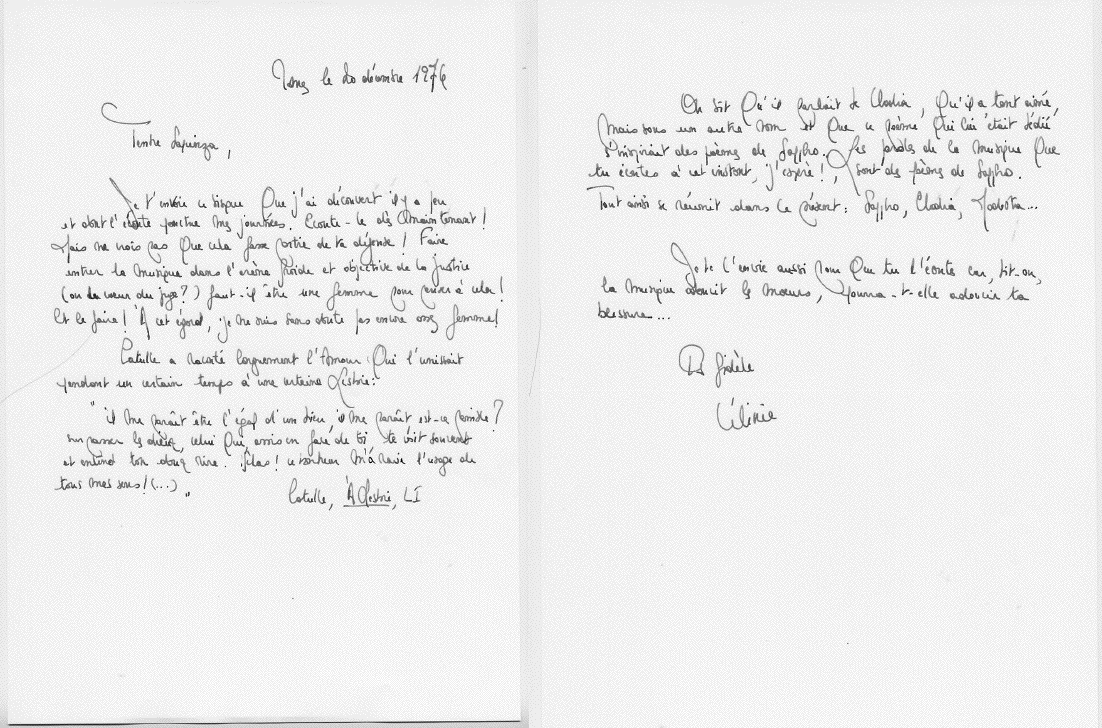 le 20 décembre 1976
Tendre Sapienza,
Je t'envoie ce disque Que j'ai découvert il y a peu
et dont l'écoute ponctue mes journées. Ecoute-le dès maintenant !
Mais ne crois pas Que cela fasse partie de ta défense ! Faire
entrer la musique dans l'arène froide et objective de la Justice
(ou du coeur du juge ?) faut-il être une femme pour penser à cela !
Et le faire ! À cet égard, je ne suis sans doute pas encore assez femme !
Catulle a raconté longuement l'Amour Qui l'unissait
pendant un certain temps à une certaine Lesbie :
" il me paraît être l'égal d'un dieu, il me paraît est-ce possible ?
surpasser les dieux, celui Qui, assis en face de toi te voit souvent
et entend ton doux rire. Hélas ! ce bonheur m'a ravi l'usage de
tous mes sens ! (...) "
Catulle, À Lesbie, LI
On dit Qu'il parlait de Clodia, Qu'il a tant aimé,
Mais sous un autre nom et Que ce poème Qui lui était dédié
s'inspirait des poèmes de Sappho. Les paroles de la musique Que
tu écoutes à cet instant, j'espère !, sont des poèmes de Sappho.
Tout ainsi se réunit dans le présent : Sappho, Clodia, Modesta...
Je te l'envoie aussi pour Que tu l'écoutes car, dit-on,
la musique adoucit les moeurs, pourra-t-elle adoucir ta
blessure...
Ta fidèle
Célinie